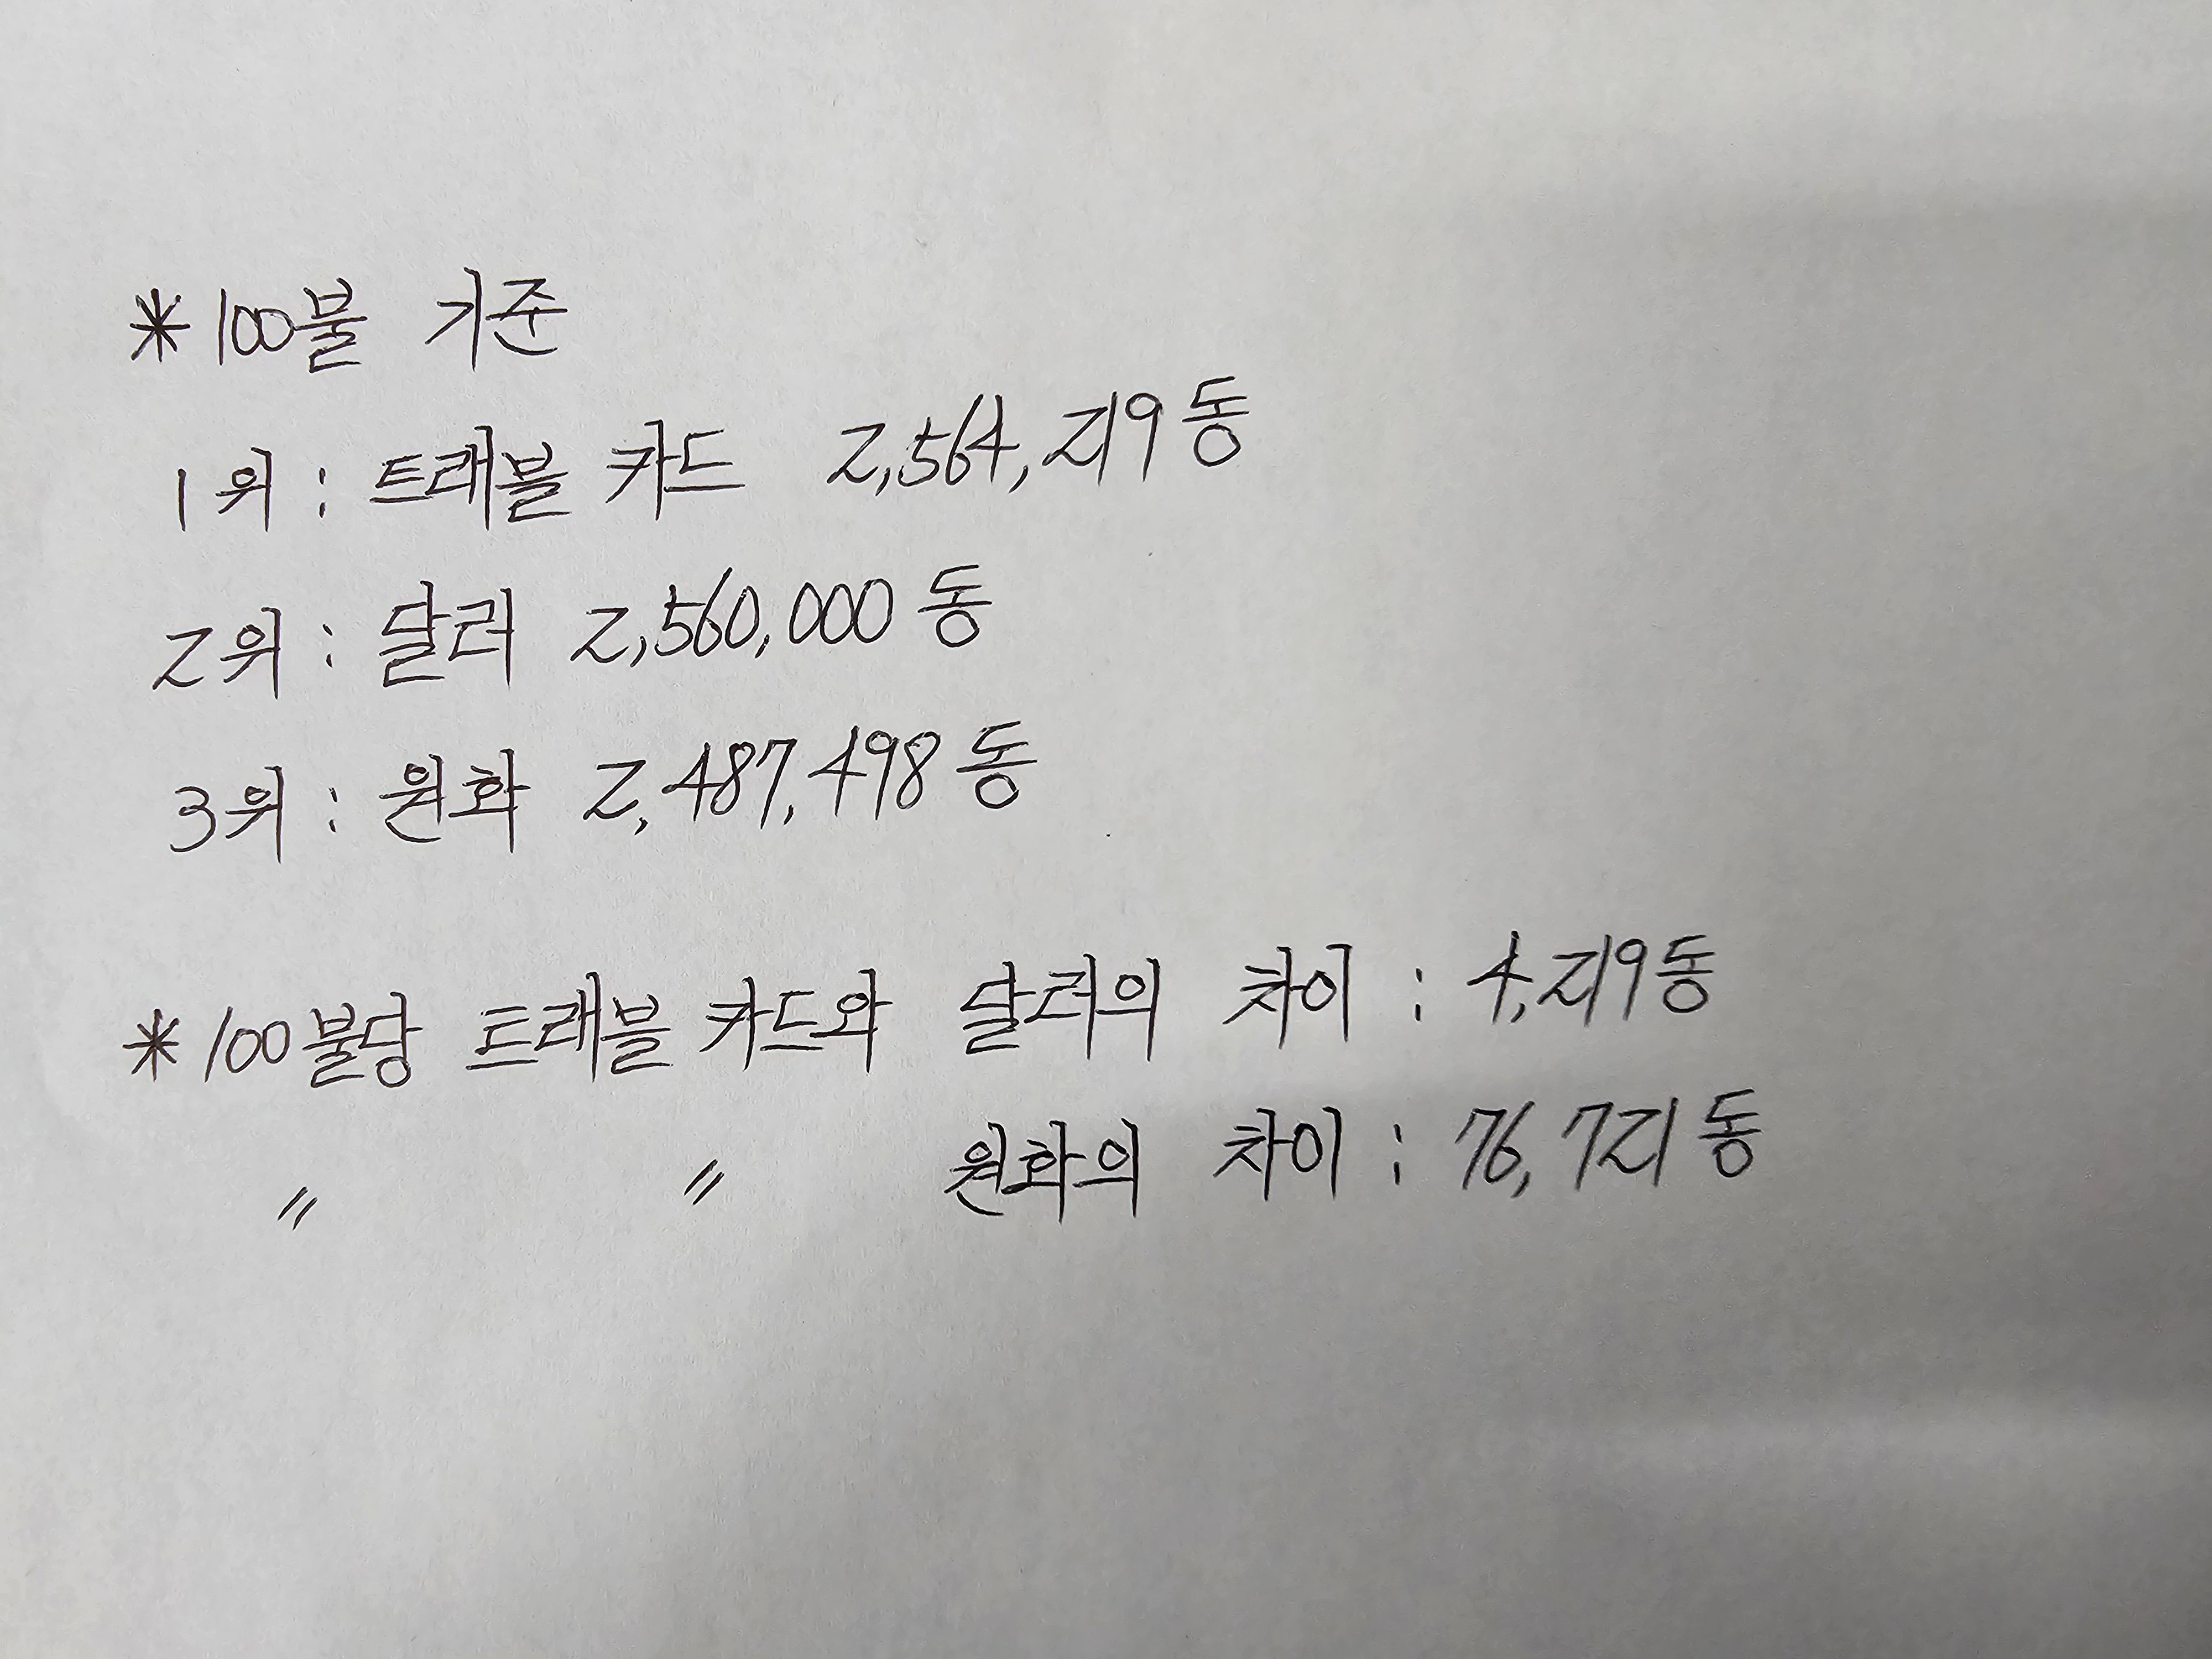 *100불 기준
1위 : 트래블 카드 2,564,219동
2위 : 달러 2,560,000동
3위 : 원화 2,487,498동
*100불당 트래블 카드와 달러의 차이 : 4,219동
〃 〃 원화의 차이 : 76,721동